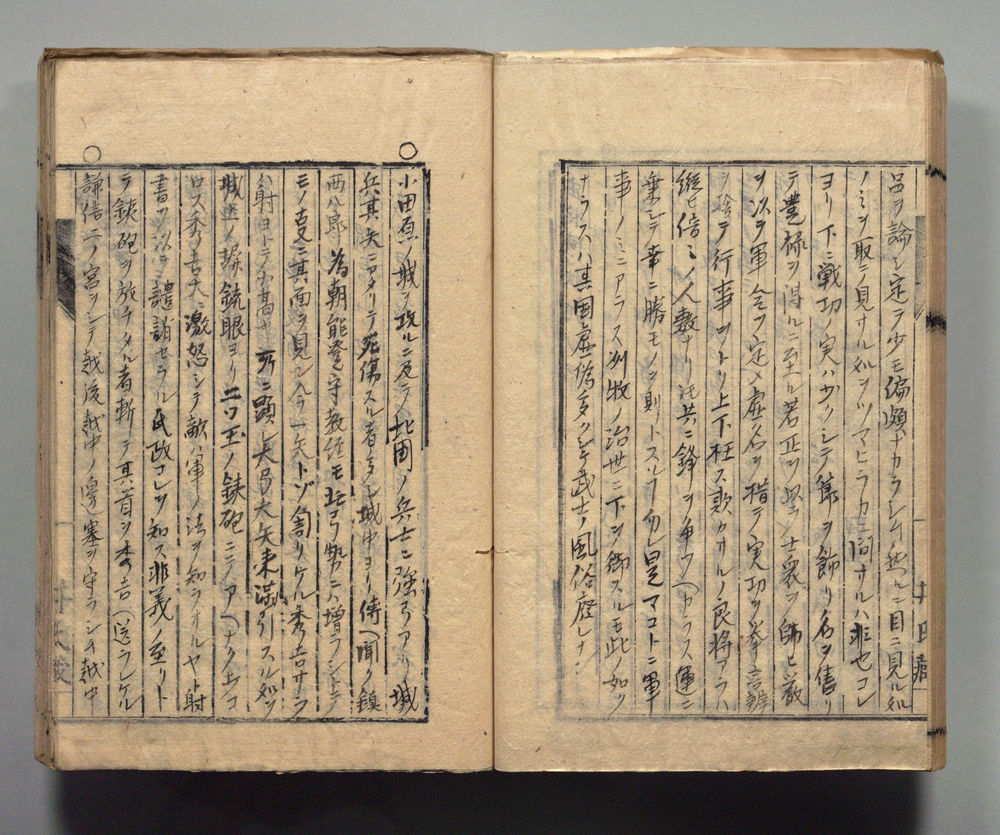 呂ヲ論シ定テ少モ偏頗ナカラシム然ルニ目ニ見ル処
ノミヲ取テ見サル処ヲツマヒラカニ問サルハ非也コレ
ヨリ下ニ戦功ノ実ハカクシテ飾ヲ飾リ名ヲ售リ
テ豊禄ヲ得ルニ至ル若正シ以テ士衆ヲ帥ヒ厳
ヲ以テ軍令ヲ定メ虚名ヲ措テ実功ヲ挙言辞
ヲ捨テ行事ヲトリ上下枉ス欺カサルノ良将アラハ
縦ヒ倍ミノ人数ナリ共ニ鋒ヲ争フヘカラス運ニ
乗シテ幸ニ勝モノヲ則トスル勿レ是マコトニ軍
事ノミニアラス州牧ノ治世ニ下ヲ御スルモ此ノ如ク
ナラスハ其国虚偽多クシテ武士ノ風俗廃レナン
○小田原ノ城ヲ攻ルニ及テ北国ノ兵士ニ強弓アリ城
兵其矢ニアタリテ死傷スル者多シ城中ヨリ傳ヘ聞ク鎮
西八郎為朝能登守教経モ此弓勢ニハ増ラシトテ
モノ事ニ其面ヲ見シ今一矢トゾ匐リケル秀吉サラ
ハ射ヨトテ高サ所ニ顕レ大弓大矢来満引スル処ヲ
城近ノ銃眼ヨリ二ツ玉ノ鉄砲ニテアヘナク射コ
ロス秀吉大ニ激怒シテ敵ハ軍ノ法ヲ知ラサルヤト射
書ヲ以テ譴誚セラル氏政コレヲ知ス非義ノ至リト
テ鉄砲ヲ放チタル者斬テ其首ヲ秀吉ヘ送ラレケル
○謙信二ノ宮ヲシテ越後越中ノ邊塞ヲ守ラシム越中